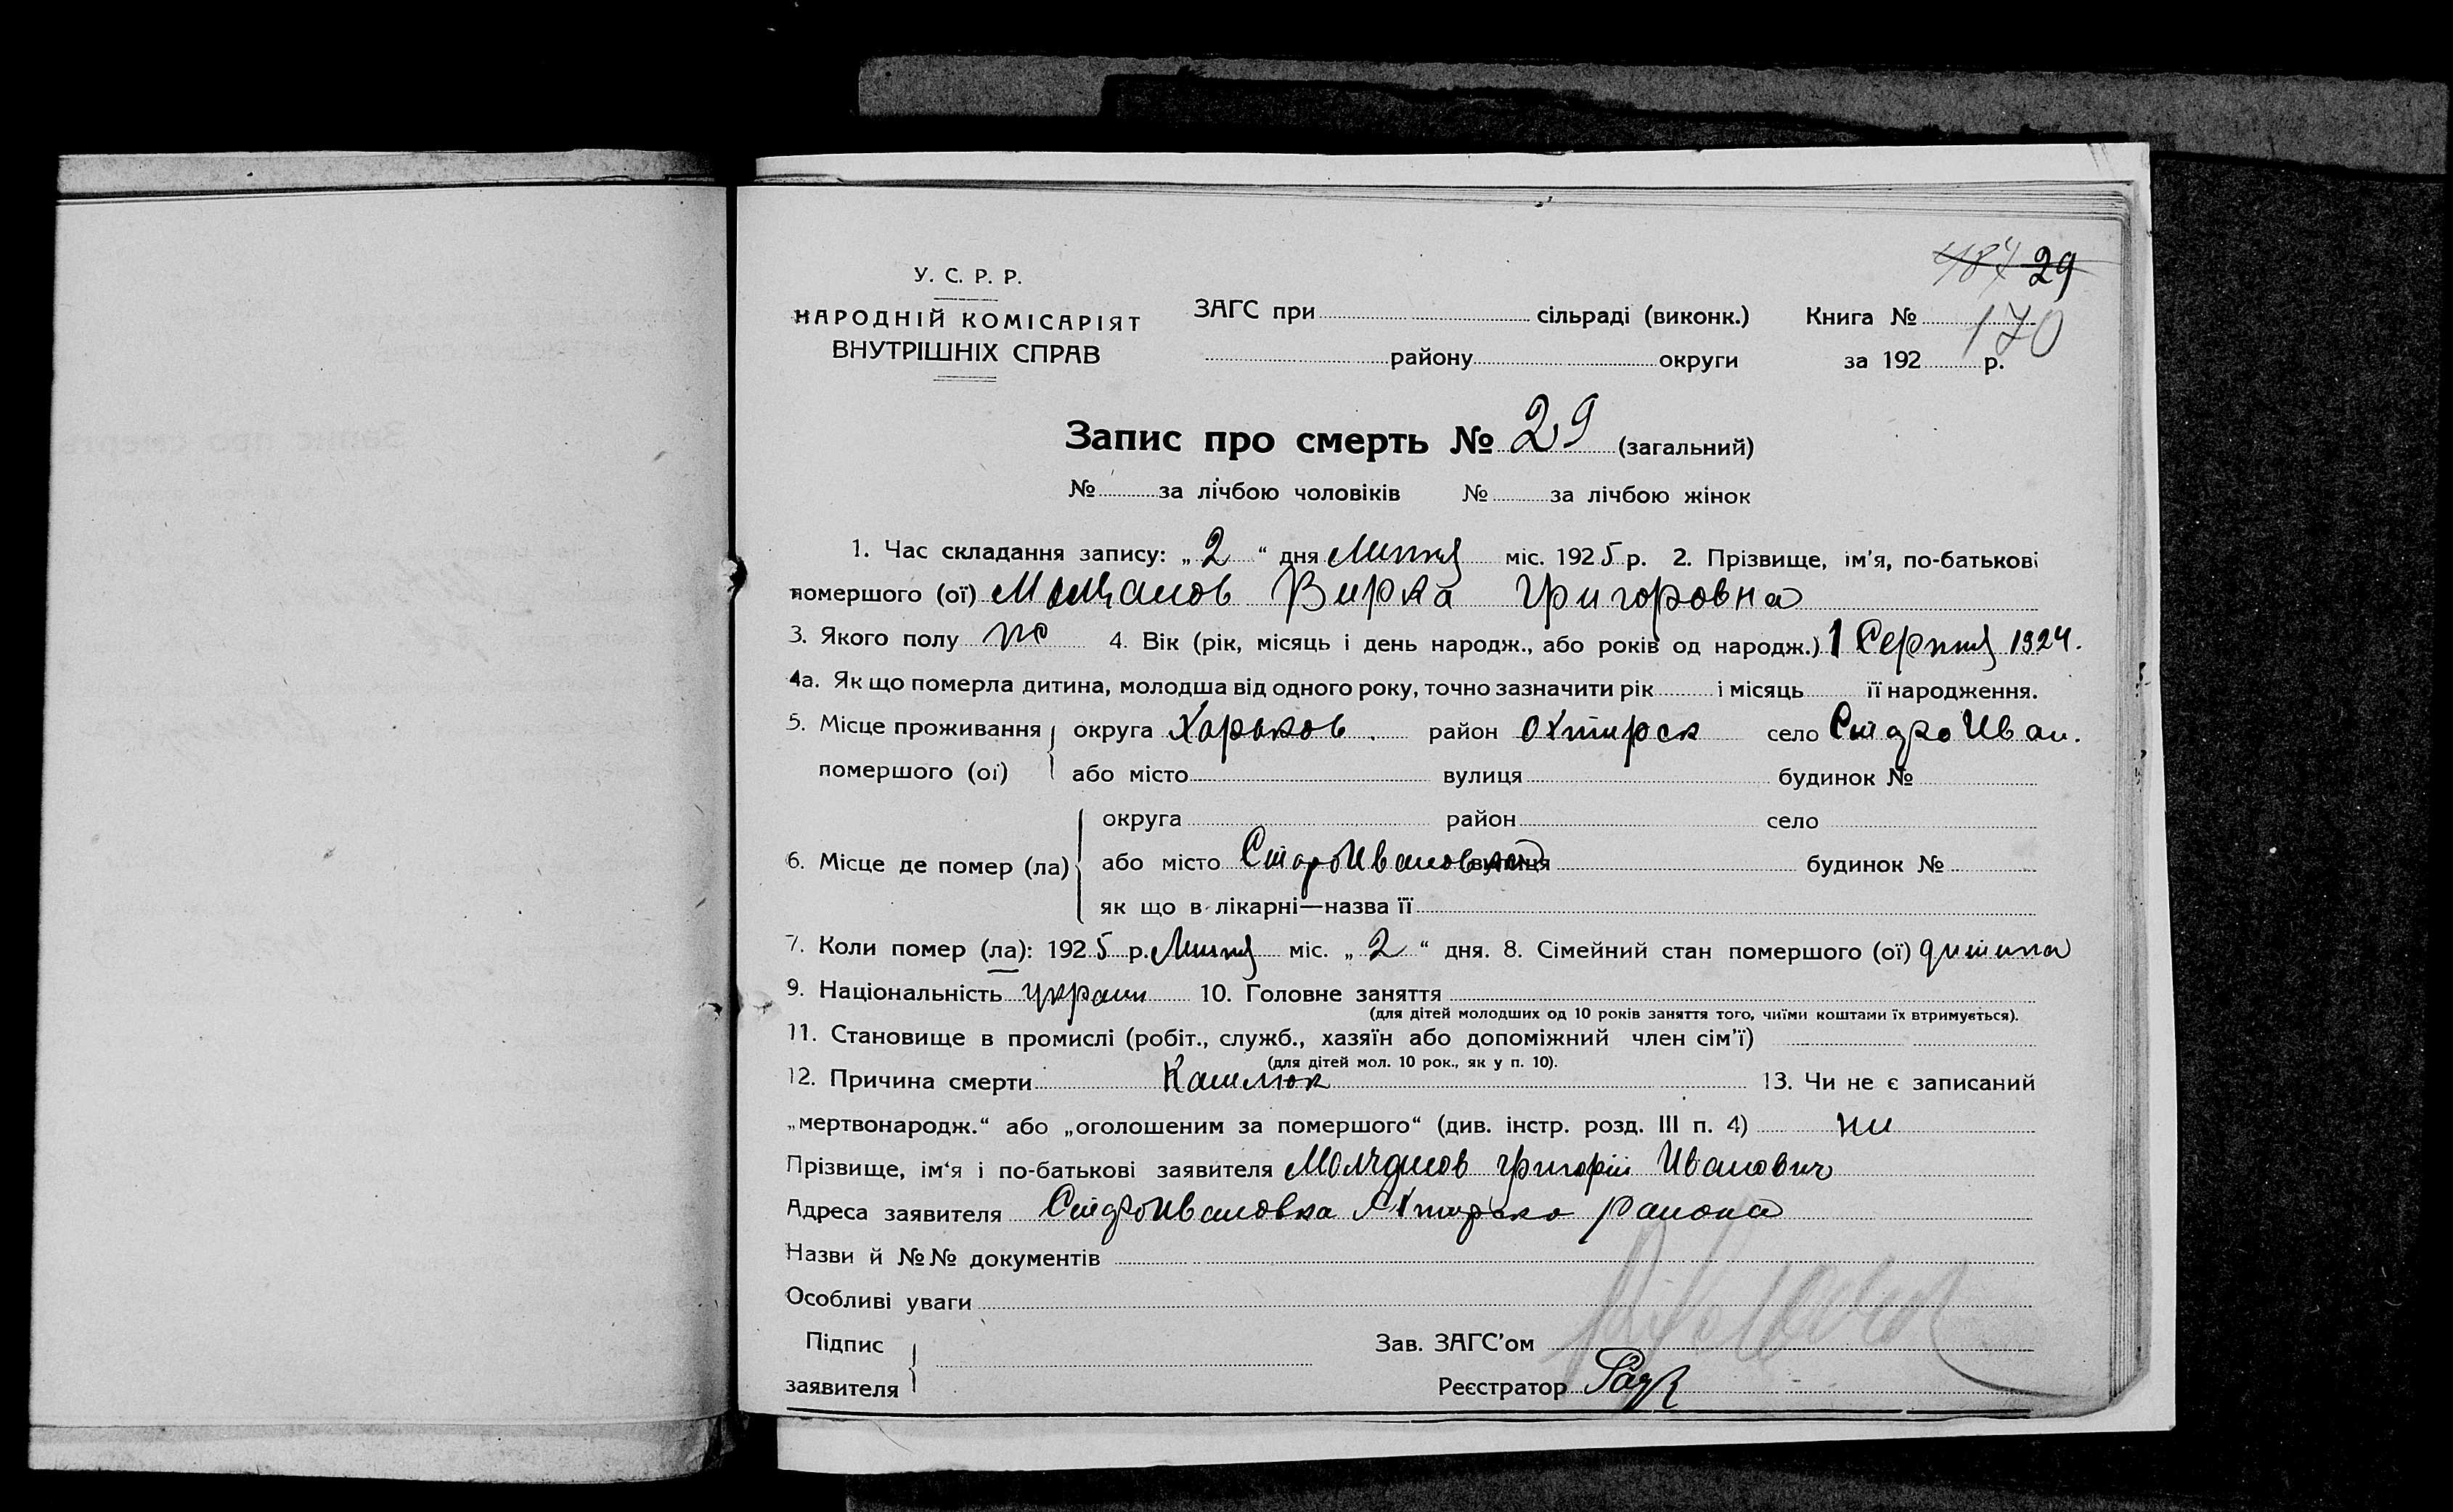 29
У. С. Р. Р.
НАРОДНІЙ КОМІСАРІЯТ
ВНУТРІШНІХ СПРАВ
ЗАГС при сільраді (виконк.)
району округи
Книга №
170
за 192 р.
Запис про смерть № 29 (загальний)
№ за лічбою чоловіків № за лічбою жінок
1. Час складання запису: „2“ дня Липня міс. 1925 р. 2. Прізвище, ім'я, по-батькові
помершого (ої) Молчанов Вирка Григоровна
3. Якого полу ж 4. Вік (рік, місяць і день народж., або років од народж.) 1 Серпня 1924.
4а. Як що померла дитина, молодша від одного року, точно зазначити рік і місяць її народження.
5. Місце проживання округа Харьков район Охтирск село Старо Иван.
помершого (ої) або місто вулиця будинок №
округа район село
6. Місце де помер (ла) або місто СтароИвановка вулиця будинок №
як що в лікарні—назва її
7. Коли помер (ла): 1925 р. Липня міс. „2“ дня. 8. Сімейний стан помершого (ої) дитина
9. Національність украин 10. Головне заняття
(для дітей молодших од 10 років заняття того, чиїми коштами їх втримується).
11. Становище в промислі (робіт., служб., хазяїн або допоміжний член сім'ї)
(для дітей мол. 10 рок., як у п. 10).
12. Причина смерти Кашлюк 13. Чи не є записаний
„мертвонародж.“ або „оголошеним за помершого“ (див. інстр. розд. III п. 4) ни
Прізвище, ім'я і по-батькові заявителя Молчанов Григорій Иванович
Адреса заявителя СтароИвановка Района
Назви й №№ документів
Особливі уваги
Підпис
заявителя
Зав. ЗАГС'ом
Реєстратор